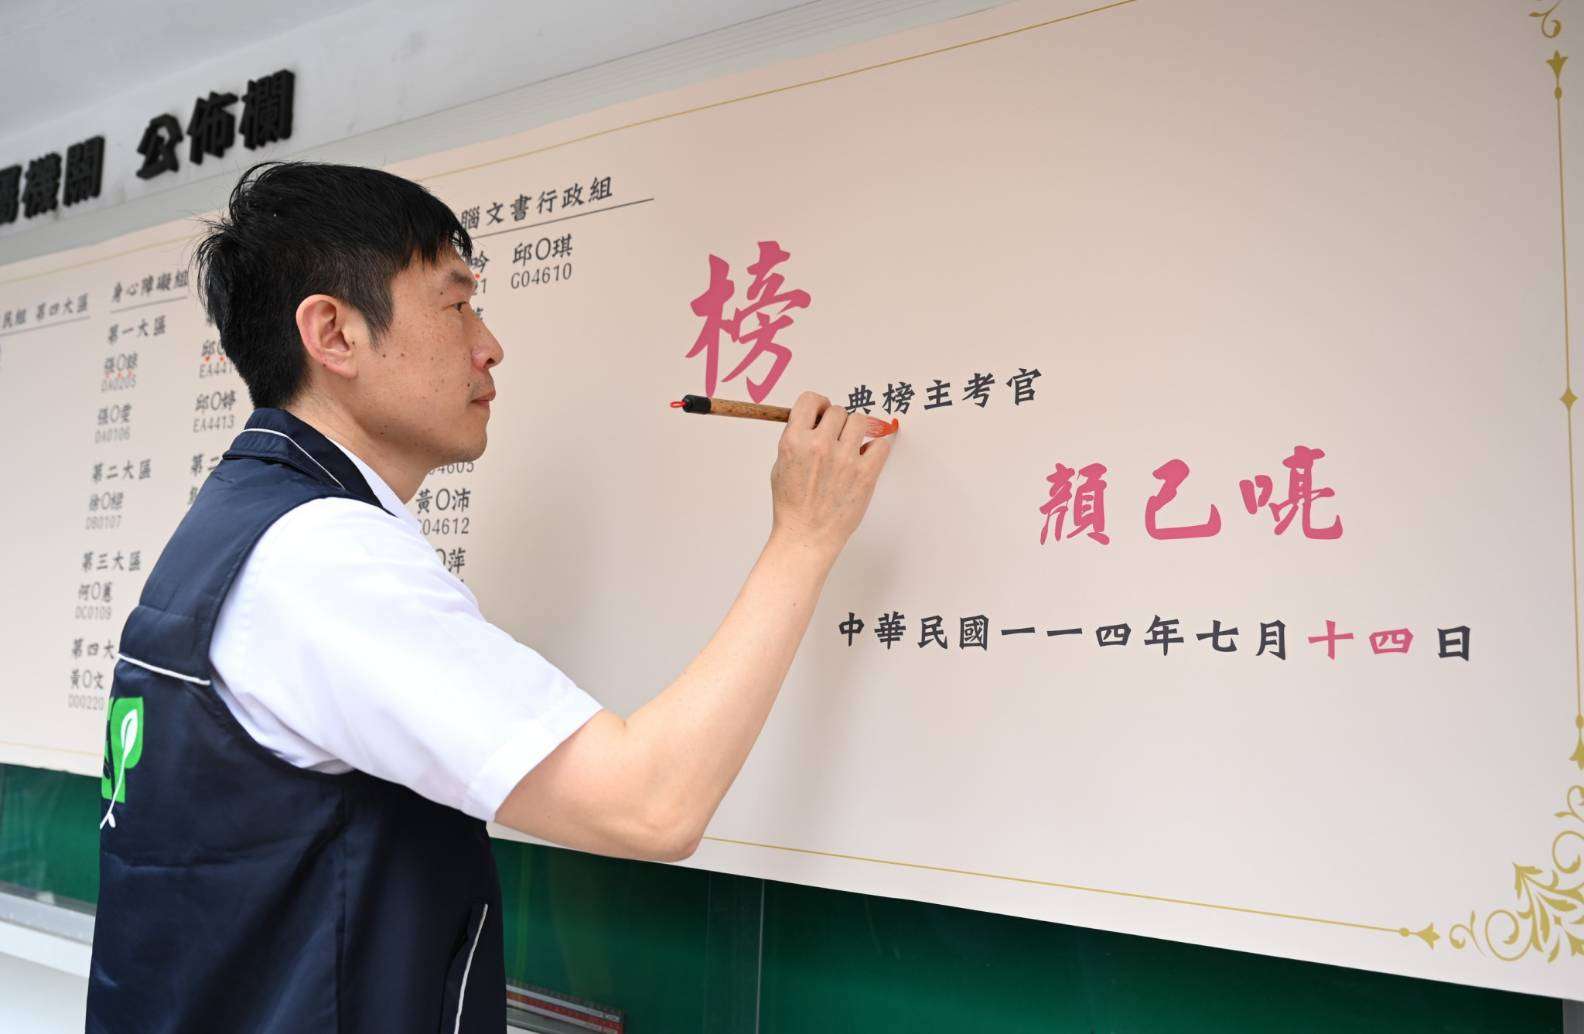 機關 公佈欄
民組 第四大區
身心障礙組
第一大區
張O
DA0205
張O雯
DA0106
第二大區
徐O樑
DB0107
第三大區
何O蕙
DC0109
第四大
黃O文
DD0220
邱O
EA441
邱O婷
EA4413
第二
腦文書行政組
吟
21
邱O琪
G04610
04605
黃O沛
G04612
O萍
榜
典榜主考官
顏己喨
中華民國一一四年七月十四日